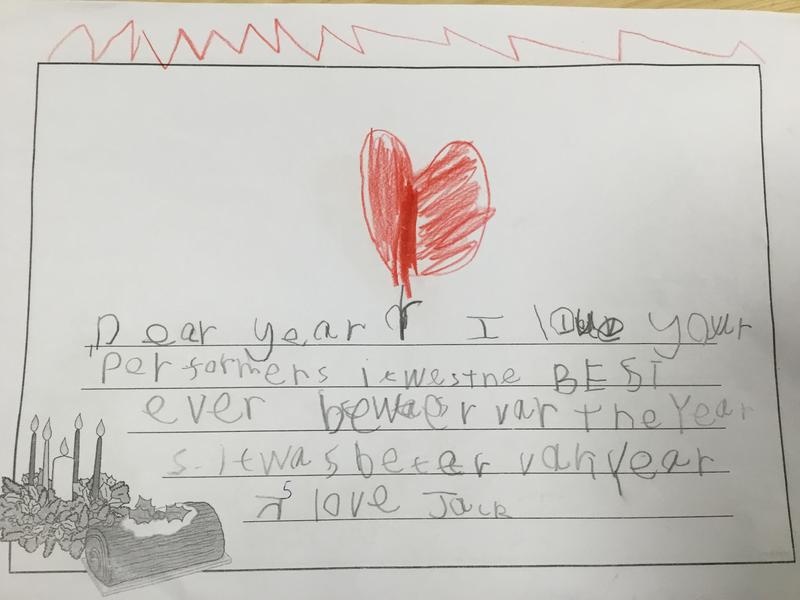 Dear year r I love your
Performers itwesthe BEST
ever var the Year
s. Itwas beter van year
5 love Jack